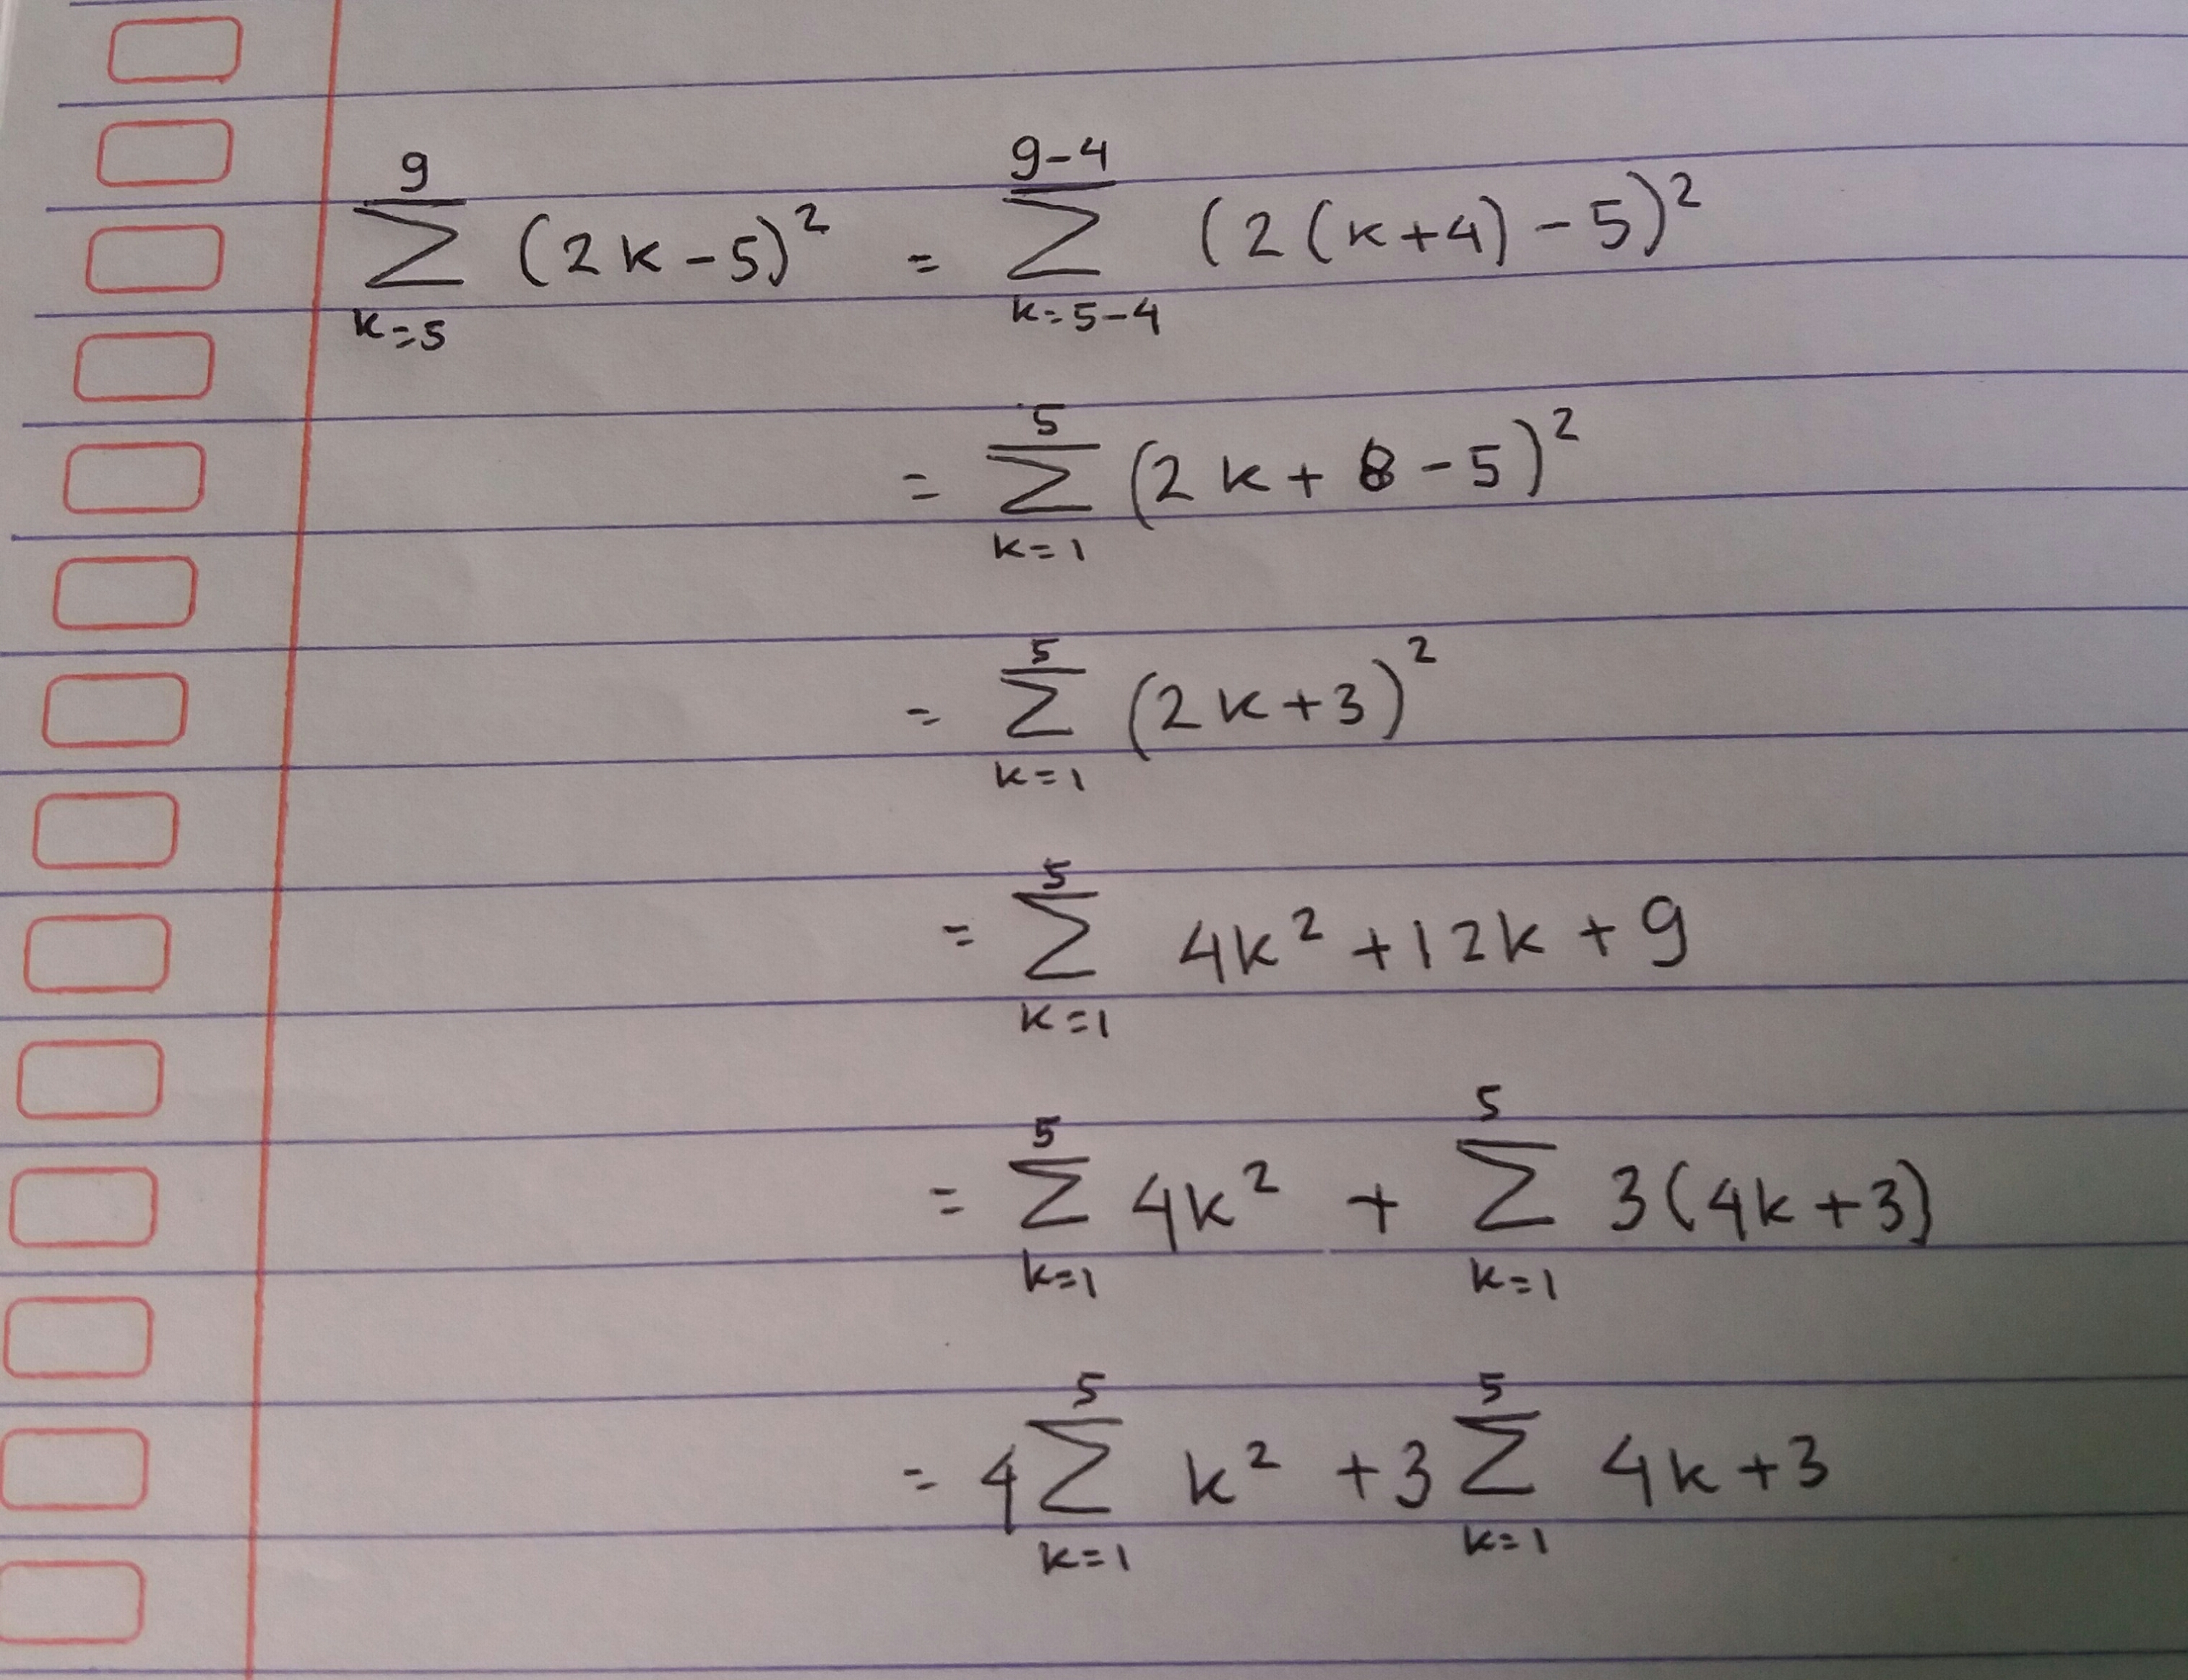 \sum_{k=5}^{9} (2k-5)^2 = \sum_{k=5-4}^{9-4} (2(k+4)-5)^2
= \sum_{k=1}^{5} (2k+8-5)^2
= \sum_{k=1}^{5} (2k+3)^2
= \sum_{k=1}^{5} 4k^2+12k+9
= \sum_{k=1}^{5} 4k^2 + \sum_{k=1}^{5} 3(4k+3)
= 4\sum_{k=1}^{5} k^2 +3\sum_{k=1}^{5} 4k+3